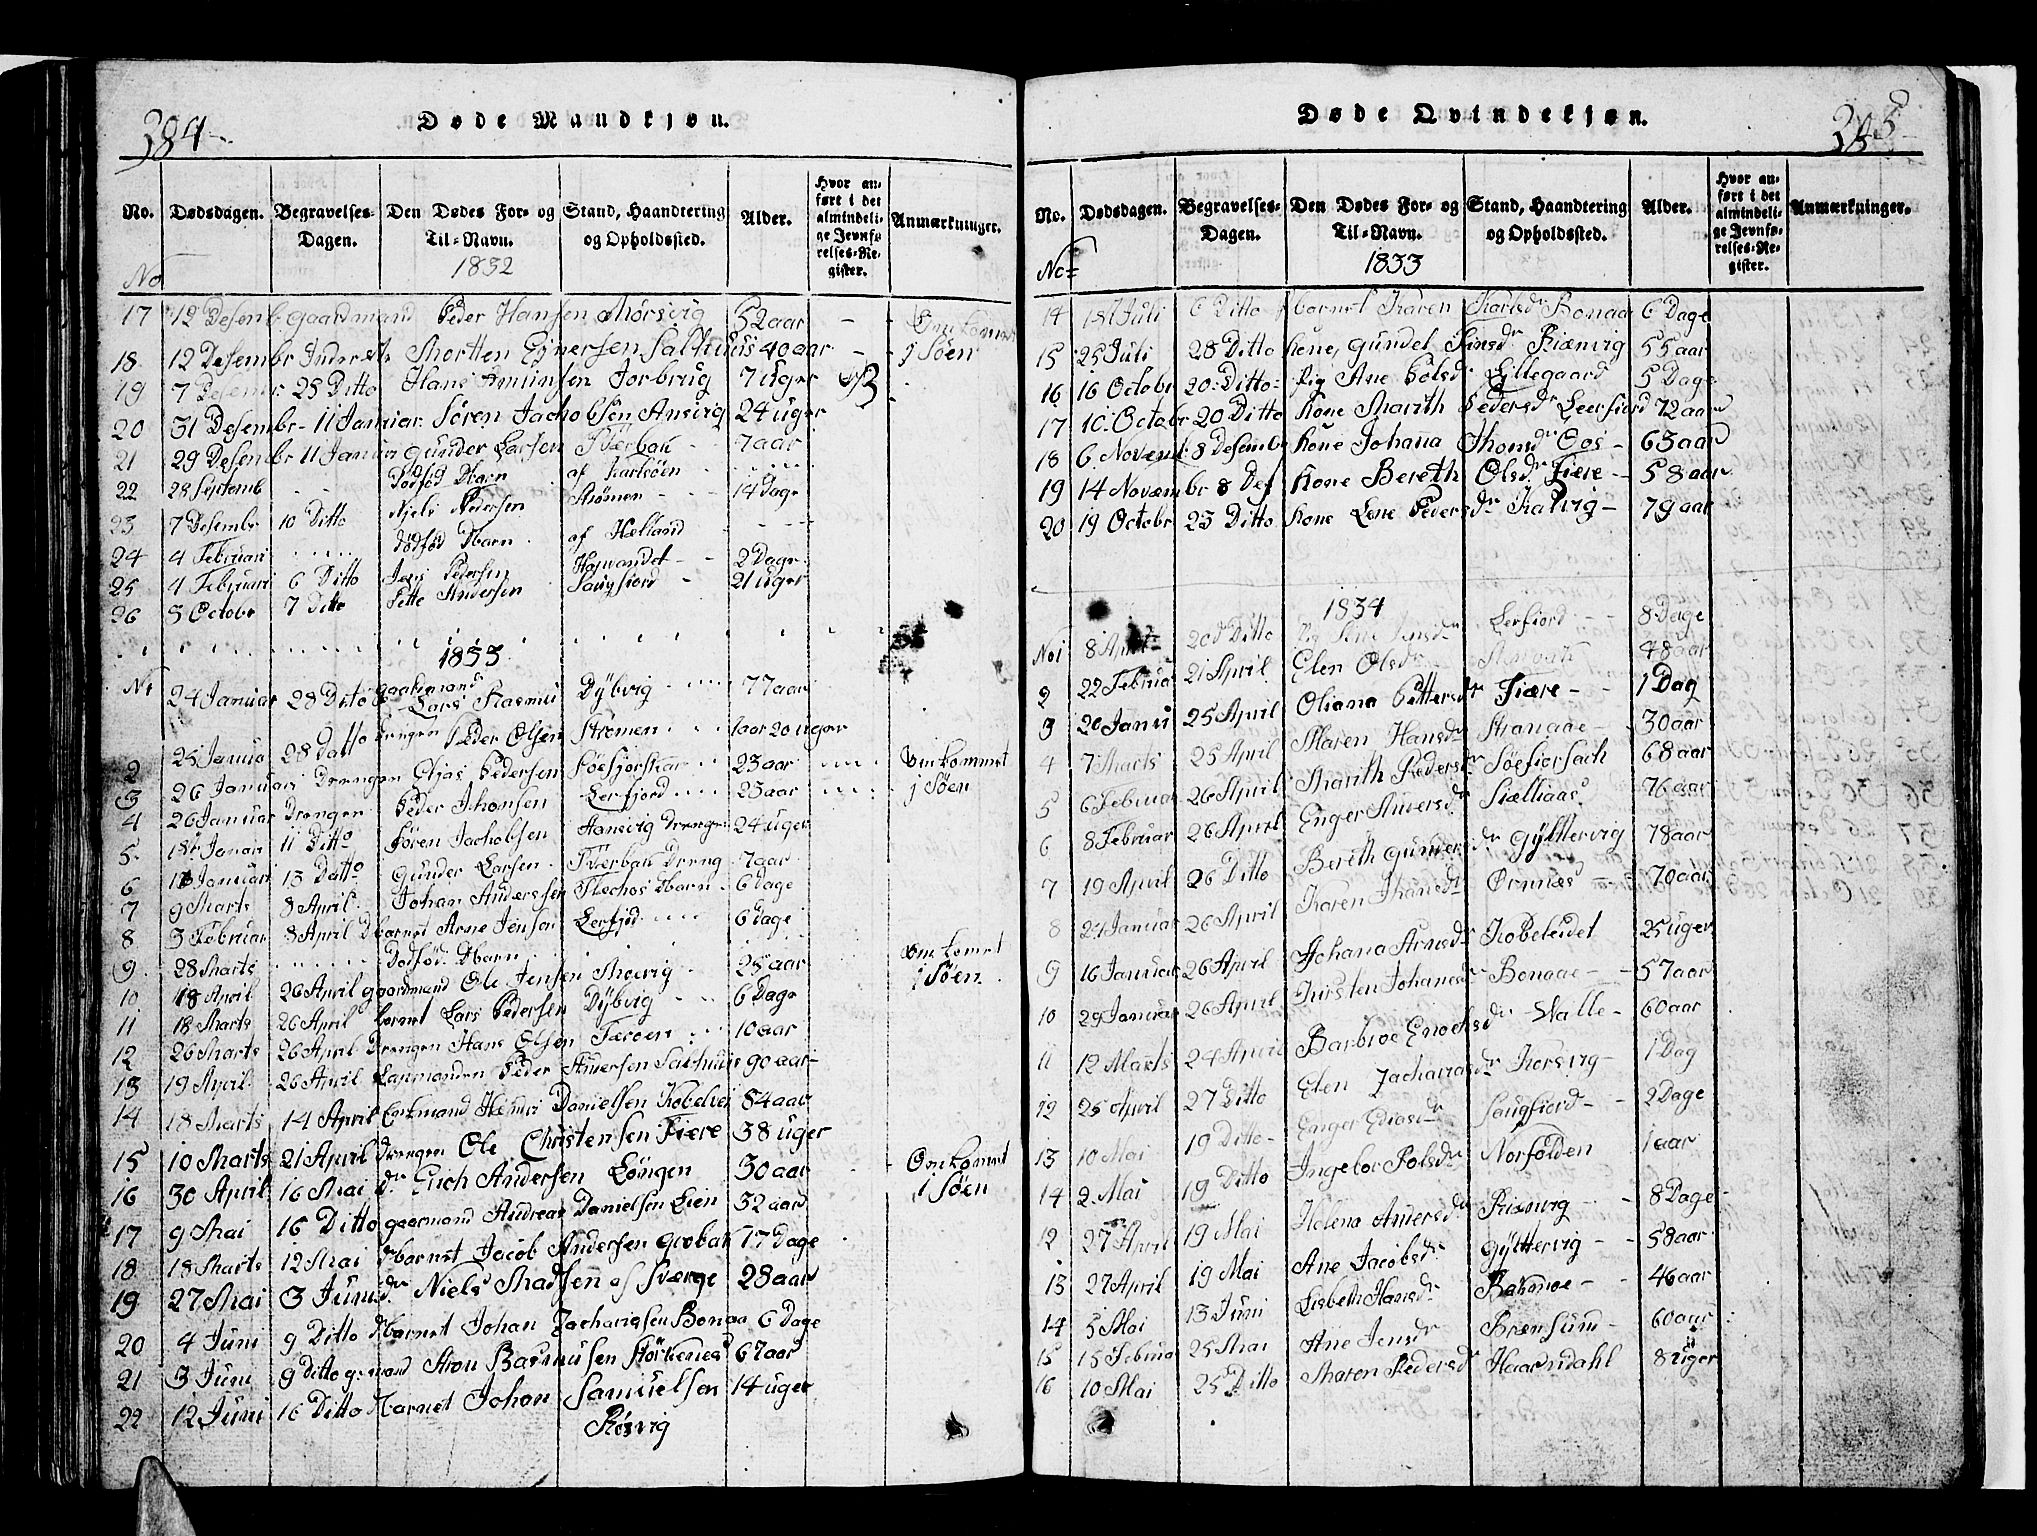 384
Døde Mandkjøn.
No. Dødsdagen. Begravelses-Dagen. Den Dødes For- og Til-Navn. Stand, Haandtering og Opholdssted. Alder. Hvor anført i det almindelige Jevnførelses-Register. Anmærkninger.
No 1832
17 12 Desemb gaardmand Peder Hansen Mørsvig 52 aar - Omkommet
18 12 Desembr Inderst Morten Ejversen Salthuus 40 aar - j Søen
19 7 Desemr 25 Ditto Hans Amunsen Torbrug 7 uger
20 31 Desembr - 11 Januar Søren Jachobsen Ansvig 24 uger
21 29 Desembr 11 Januar Gunder Larsen Tverbak 7 aar
22 28 Septemb Dødfød Barn af Karlsøen
23 7 Desembr 10 Ditto Niels Pedersen Strømen 14 Dage
24 4 Februari Dødfød Barn af Hælland
25 4 Februari 6 Ditto Jens Pedersen Hopvandet 2 Dage
26 3 Octobr 7 Ditto Pette Andersen Saugfiord 21 uger
1833
N1 24 Januar 28 Ditto gaardmand Lars Rasmus Dybvig 77 aar
2 25 Janua 28 Ditto Drengen Peder Olsen Strømen 1 aar 20 uger
3 26 Januari Drengen Elias Pedersen 23 aar Omkommet
4 26 Januar Drengen Peder Jhonsen Lerfjord 23 aar j Søen
5 1st Januar 11 Ditto Søren Jachobsen Hansvig Drenge 24 uger
6 Januari 13 Ditto Gunder Larsen Tverbak Dreng 7 aar
7 9 Marts 8 April Johan Anderssen Barn 6 Dage
8 3 Februar 8 April Barnet Arne Jensen Lerfjod 6 dage
9 28 Marts Dødfød Barn Omkomt
10 18 April 26 April gaardmand Ole Jensen 25 aar j Søen
11 18 Marts 26 April barnet Lars Pedersen Dybvig 6 Dage
12 26 Marts 26 April Drengen Hans Olsen 10 aar
13 19 April 26 April Peder Andersen Salthuus 90 aar
14 18 Marts 14 April Daniellsen Kobelvei 84 aar
15 10 Marts 21 April Drengen Ole Christensen Fiære 38 uger
16 30 April 16 Mai dr Erich Andersen Løngen 30 aar Omkomt i Søen
17 9 Mai 16 Ditto gaarmand Andreas Danielsen Lien 32 aar
18 18 Marts 12 Mai barnet Jacob Andersen 17 Dage
19 27 Mai 3 Juni dr Niels Madsen af Sværge 28 aar
20 4 Juni 9 Ditto Barnet Johan Zachariasen Bonaa 6 Dage
21 3 Juni 9 Ditto Aron Rasmusen Størkenes 67 aar
22 12 Juni 16 Ditto Barnet Johan Samuelsen 14 uger
Røsvig
385
Døde Qvindekjøn.
No. Dødsdagen. Begravelses-Dagen. Den Dødes For- og Til-Navn. Stand, Haandtering og Opholdssted. Alder. Hvor anført i det almindelige Jevnførelses-Register. Anmærkninger.
No= 1833
14 1st Juli 6 Ditto barnet Karen Karlsdr Bonaa 6 Dage
15 25 Juli 28 Ditto Kone, Gundel 55 aar
16 16 Octobr 20 Ditto Pig Ane Polsdr Lillegaard 5 Dage
17 10 Octobr 20 Ditto Kone Marith Pedersdr Leerfiord 72 aar
18 6 Novembr 8 Desembr Kone Johana Thomsdr Oos 63 aar
19 14 Novæmbr 8 Des Kone Bereth Olsdr Fiære 58 aar
20 19 Octobr 23 Ditto Kone Lene Pedersdr Kalvig 79 aar
1834
No1 8 April 20d Ditto Pig Lene Jensdr Lerfiord 8 Dage
2 22 Februar 21 April Elen Olsdr 48 aar
3 20 Janu 25 April Oliana Pettersdr Fiære 1 Dag
4 7 Marts 25 April Maren Hansdr Stranaae 30 aar
5 6 Februar 26 April Marith Pedersdr 68 aar
6 8 Februar 26 April Enger Andersdr 76 aar
7 19 April 26 Ditto Bereth Gundersdr Gyltervig 78 aar
8 24 Januar 26 April Karen Jhansdr Ørnnæs 70 aar
9 16 Januar 26 April Johana Arnsdr Kobeleidet 25 uger
10 29 Januar 26 April Kirsten Johansdr Bonaae 57 aar
11 12 Marts 24 April Barbroe Enochsdr Walle 60 aar
12 25 April 27 Ditto Elen Zachariasdr Korsvig 1 Dag
13 10 Mai 19 Ditto Enger Eliasdr Saugfiord 2 Dage
14 2 Mai 19 Ditto Ingebor Polsdr Norfolden 1 aar
12 27 April 19 Mai Helena Andersdr 8 Dage
13 27 April 19 Mai Ane Jacobsdr Gyltervig 58 aar
14 5 Mai 13 Juni Lisbeth Hansdr Bakmoe 46 aar
15 15 Februa 25 Mai Ane Jensdr Brensum 60 aar
16 10 Mai 25 Ditto Maren Pedersdr Haarndahl 8 uger